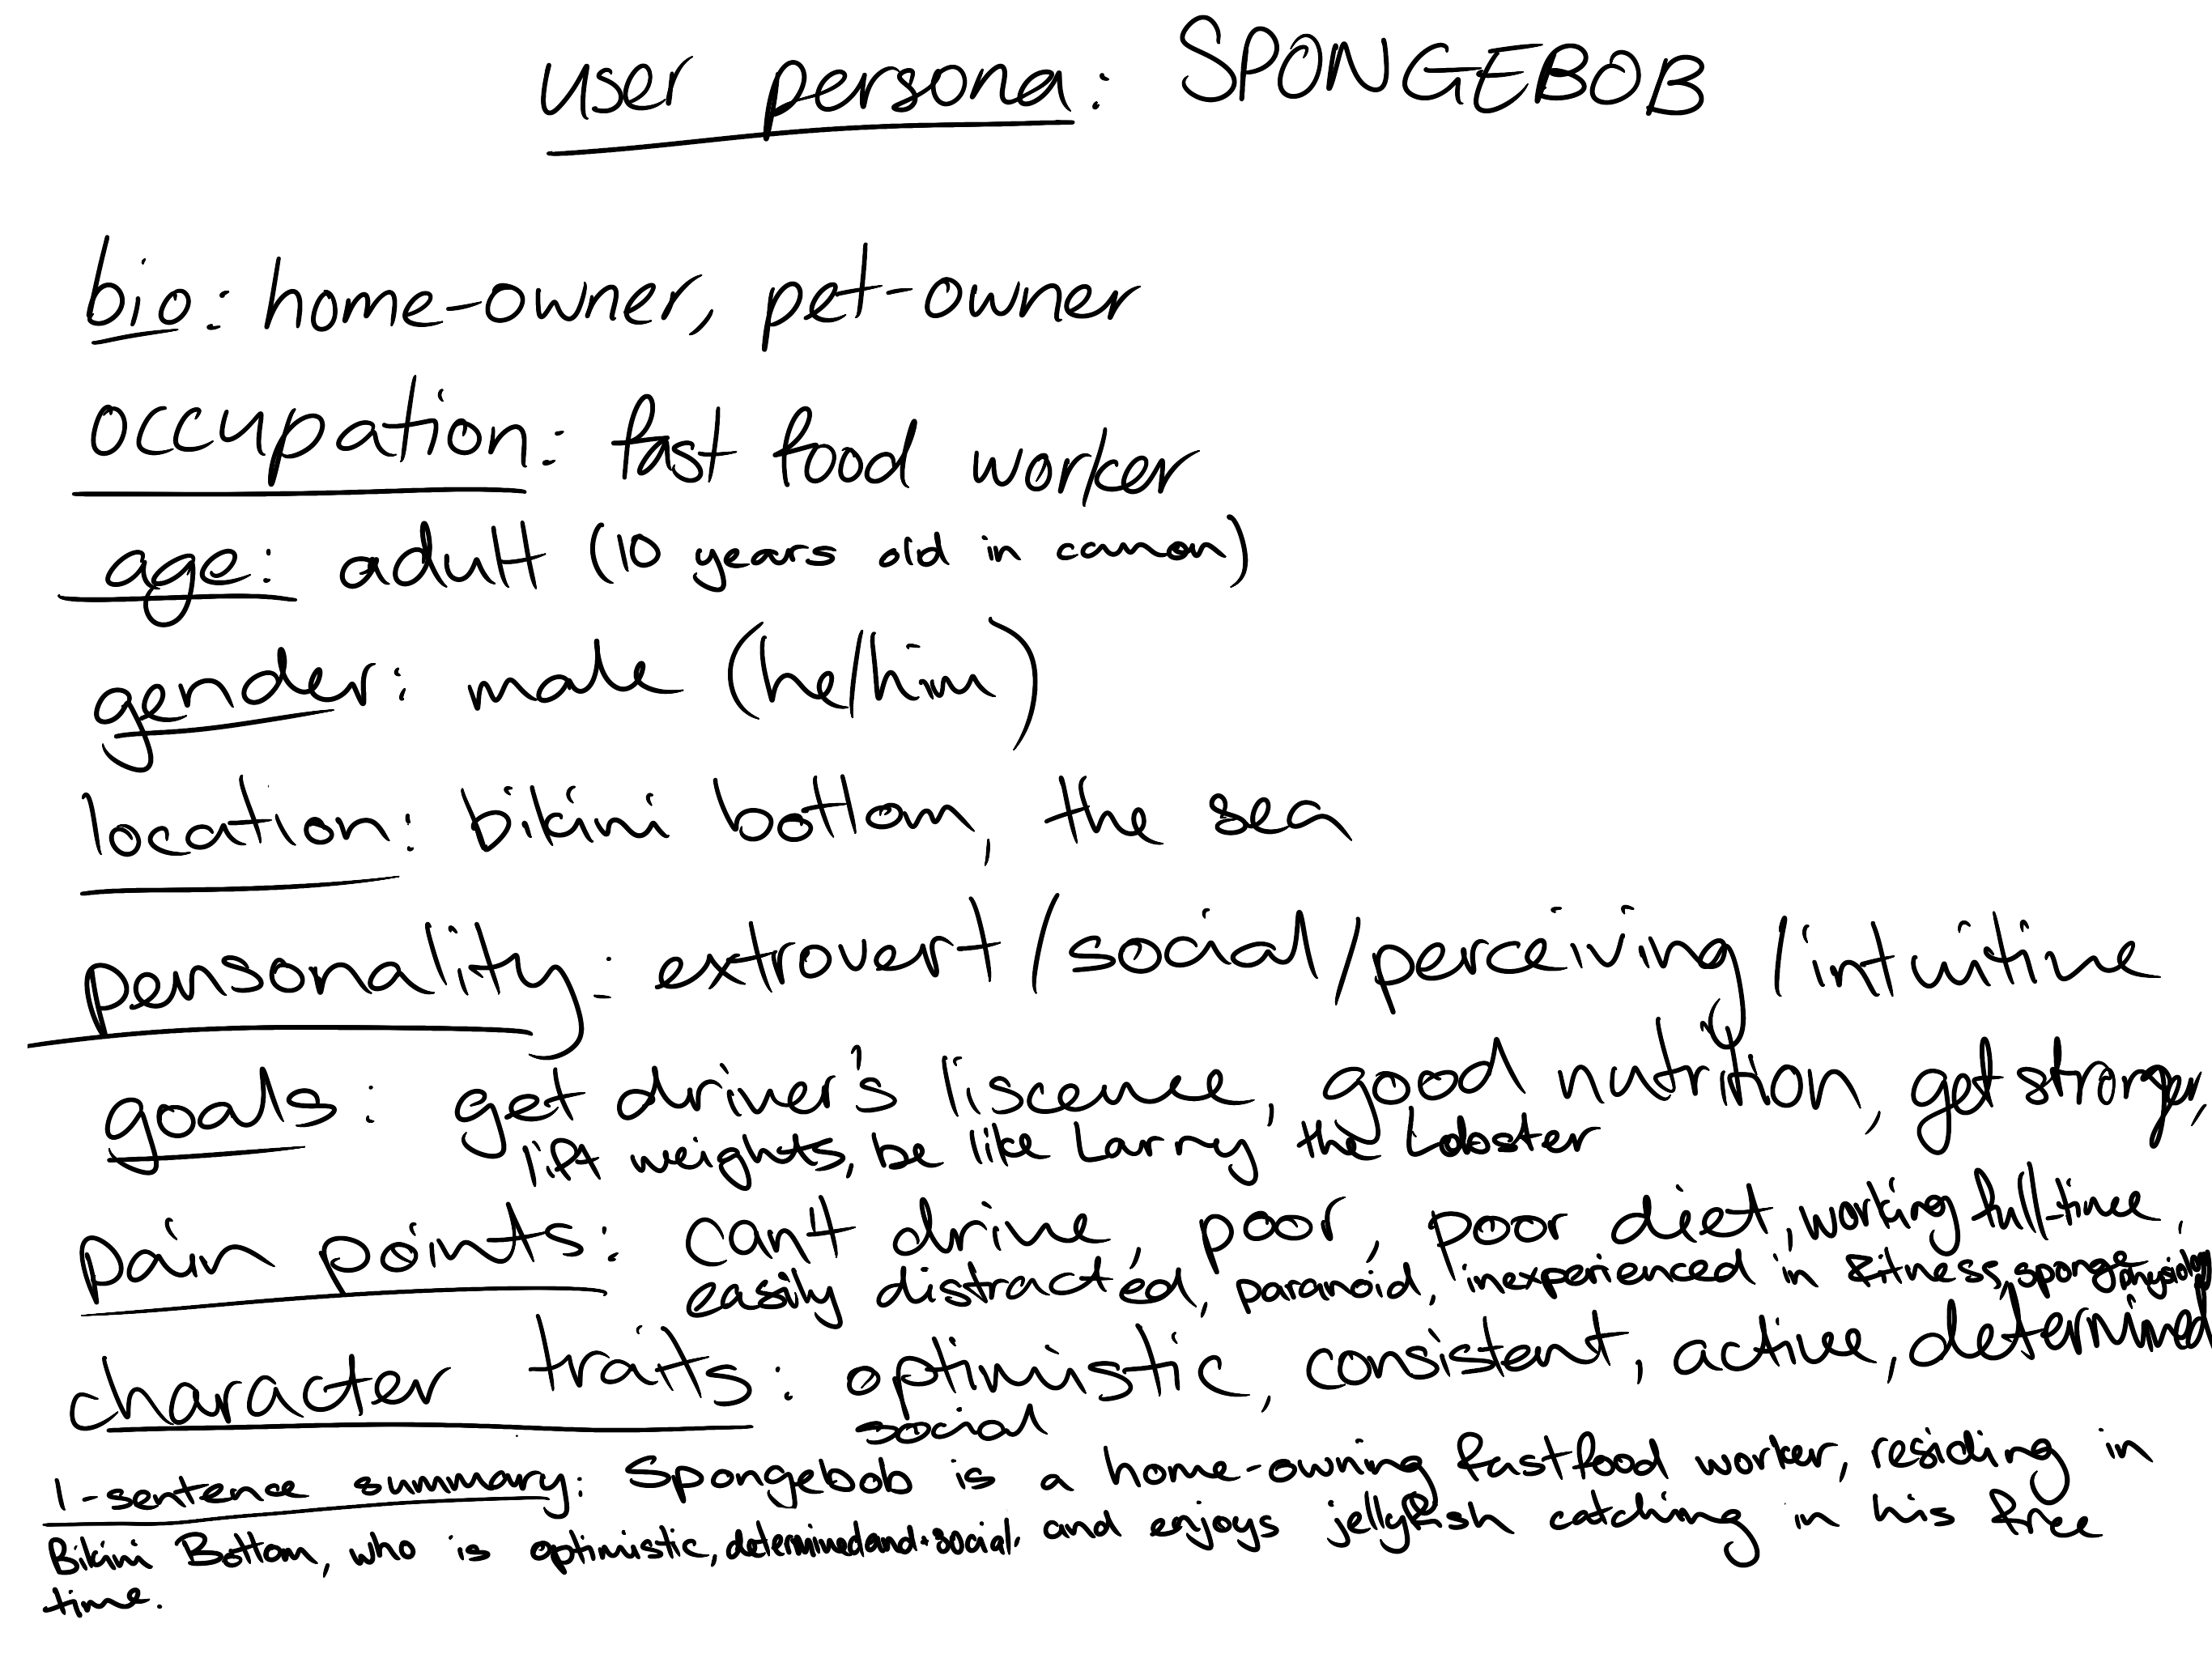 user persona: SPONGEBOB
bio: home-owner, pet-owner
occupation: fast food worker
age: adult (10 years old in common)
gender: male (he/him)
location: bikini bottom, the sea
personality: extrovert/social/perceiving/intuitive
goals: get driver's liscence, good nutrition, get stronger,
lift weights, be like Larry the Lobster
pain points: can't drive, poor, poor diet, working full-time,
easily distracted, paranoid, inexperienced in fitness, sponge physiology
character traits: optimistic, consistent, active, determined
social
1-sentence summary: Spongebob is a home-owning fastfood worker, residing in
Bikini Bottom, who is optimistic, determined and social. and enjoys jellyfish catching in his free
time.